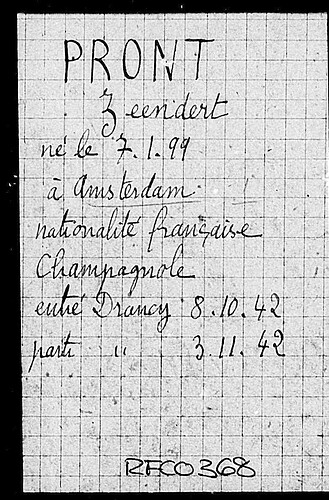 PRONT
Zeendert
né le 7.1.99
à Amsterdam
nationalité française
Champagnole
entré Drancy 8.10.42
parti " 3.11.42
RFCO368